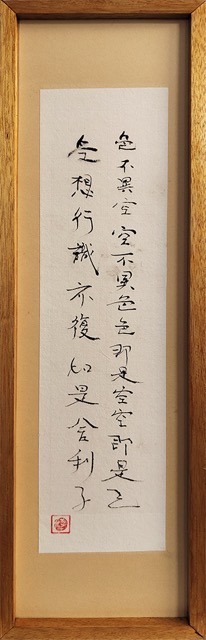 色不異空空不異色色即是空空即是色
受想行識亦復如是舍利子